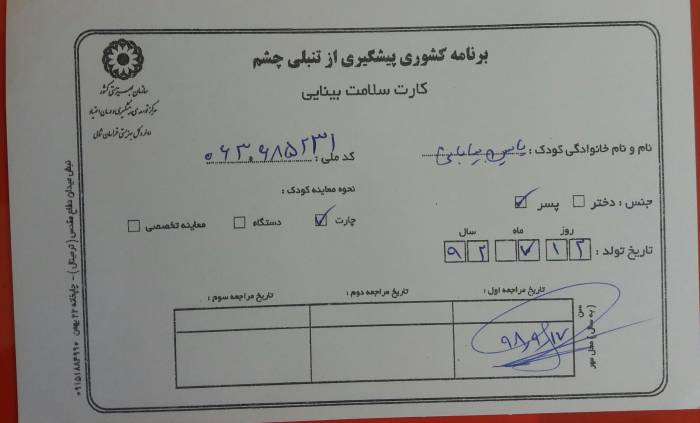 برنامه کشوری پیشگیری از تنبلی چشم
کارت سلامت بینایی
سازمان بهزیستی کشور
مرکز توسعه پیشگیری و درمان اعتیاد
اداره کل بهزیستی خراسان شمالی
نام و نام خانوادگی کودک :
کد ملی : ۰۶۳۰۶۸۵۲۳۱
جنس : دختر پسر
نحوه معاینه کودک :
چارت دستگاه معاینه تخصصی
روز ماه سال
تاریخ تولد : ۱۲ ۷ ۹۲
تاریخ مراجعه اول : تاریخ مراجعه دوم : تاریخ مراجعه سوم :
سن ( به سال ) محل مهر
۹۸/۹/۱۷
نبش میدان دفاع مقدس ( ترمینال ) - چاپخانه ۲۲ بهمن ۰۹۱۵۱۸۸۴۹۹۰